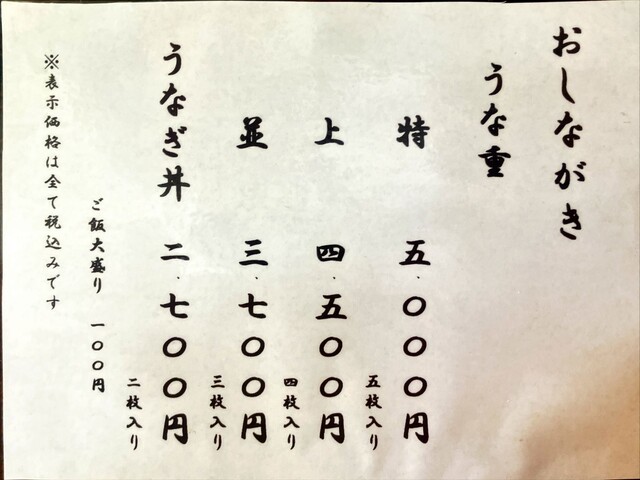 おしながき
うな重
特 五、〇〇〇円
五枚入り
上 四、五〇〇円
四枚入り
並 三、七〇〇円
三枚入り
うなぎ丼 二、七〇〇円
二枚入り
ご飯大盛り 一〇〇円
※表示価格は全て税込みです